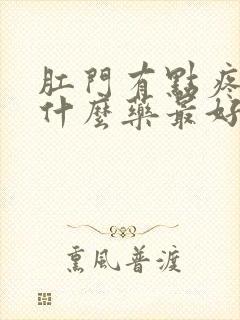 肛門有點疼
什麼藥最好
熏風普渡